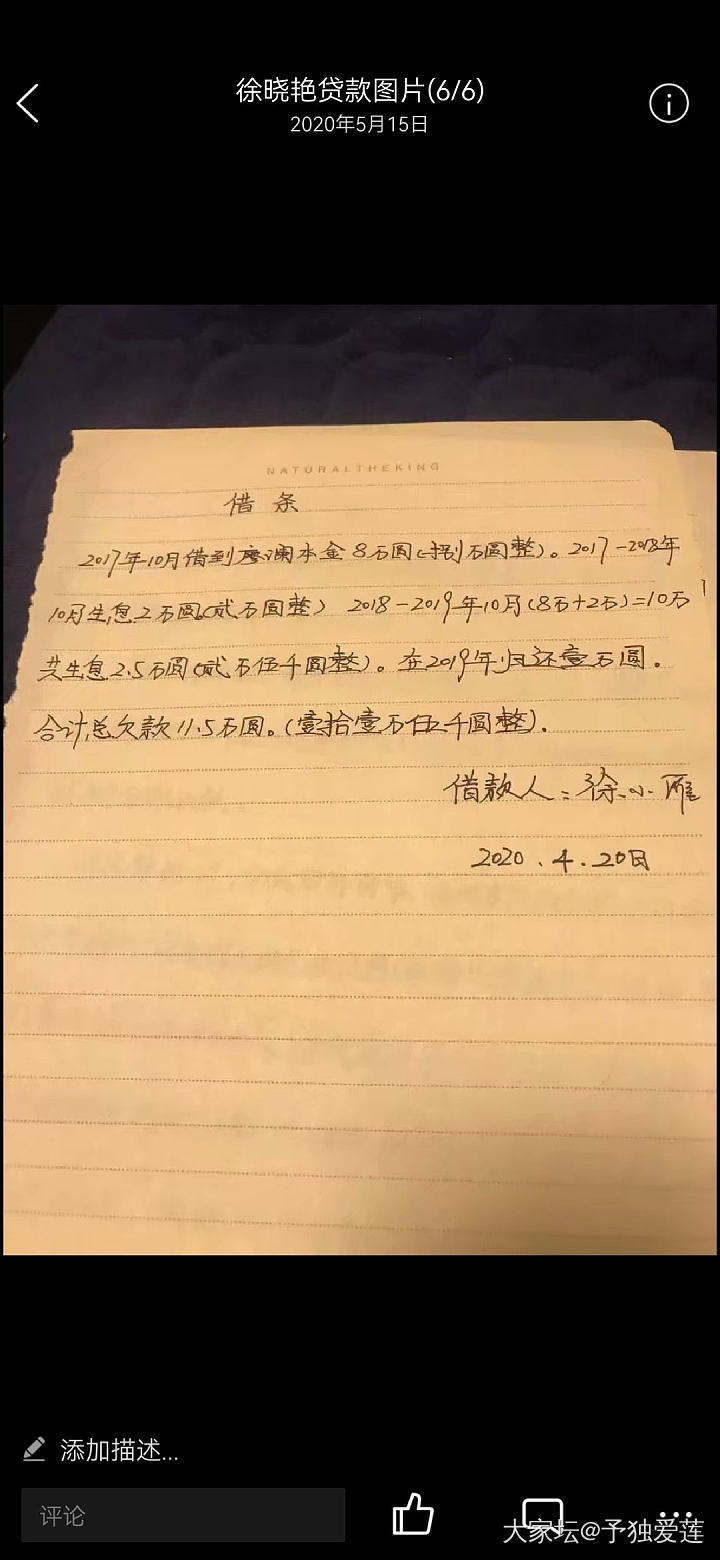 徐晓艳贷款图片(6/6)
2020年5月15日
NATURALTHEKING
借条
2017年10月借到廖澜本金8万圆(捌万圆整)。2017-2018年
10月生息2万圆(贰万圆整) 2018-2019年10月(8万+2万)=10万
共生息2.5万圆(贰万伍千圆整)。在2019年归还壹万圆。
合计总欠款11.5万圆。(壹拾壹万伍千圆整).
借款人:徐小雁
2020.4.20日
添加描述...
评论
大家坛@予独爱莲